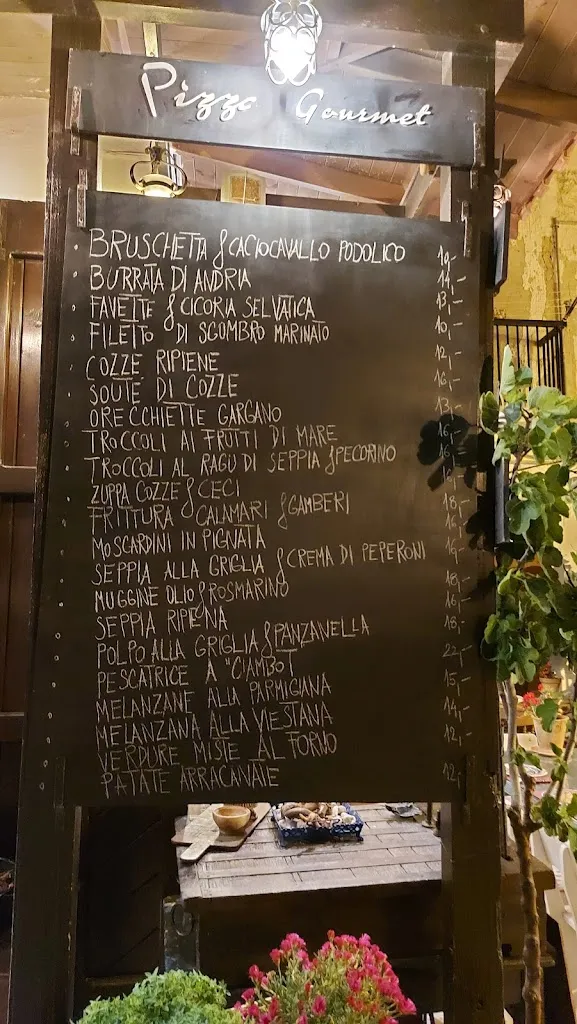 Pizza Gourmet
BRUSCHETTA & CACIOCAVALLO PODOLICO 10,-
BURRATA DI ANDRIA 14,-
FAVETTE & CICORIA SELVATICA 13,-
FILETTO DI SGOMBRO MARINATO 10,-
COZZE RIPIENE 12,-
SOUTÉ DI COZZE 16,-
ORECCHIETTE GARGANO 13,-
TROCCOLI AI FRUTTI DI MARE 16,-
TROCCOLI AL RAGÙ DI SEPPIA & PECORINO 16,-
ZUPPA COZZE & CECI
FRITTURA CALAMARI & GAMBERI 18,-
MOSCARDINI IN PIGNATA 16,-
SEPPIA ALLA GRIGLIA & CREMA DI PEPERONI 16,-
MUGGINE OLIO & ROSMARINO 18,-
SEPPIA RIPIENA 16,-
POLPO ALLA GRIGLIA & PANZANELLA 18,-
PESCATRICE A "CIAMBOT" 22,-
MELANZANE ALLA PARMIGIANA 15,-
MELANZANA ALLA VIESTANA 14,-
VERDURE MISTE AL FORNO 12,-
PATATE ARRACANATE 12,-